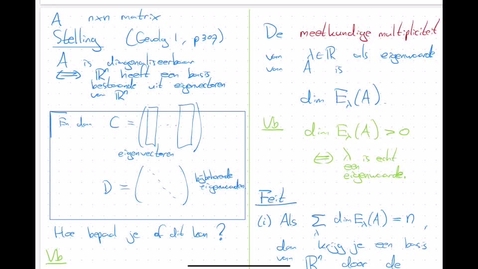 A n×n matrix
Stelling (Gevolg 1, p309)
A is diagonaliseerbaar
⟺ ℝⁿ heeft een basis
bestaande uit eigenvectoren
van ℝⁿ
En dan C = ( ... )
eigenvectoren
D = ( ) bijbehorende
eigenwaarden
Hoe bepaal je of dit kan?
Vb
De meetkundige multipliciteit
van λ∈ℝ als eigenwaarde
van A is
dim E_λ(A).
Vb dim E_λ(A) > 0
⟺ λ is echt
een
eigenwaarde.
Feit
(i) Als Σ_λ dim E_λ(A) = n,
dan krijg je een basis
van ℝⁿ door de